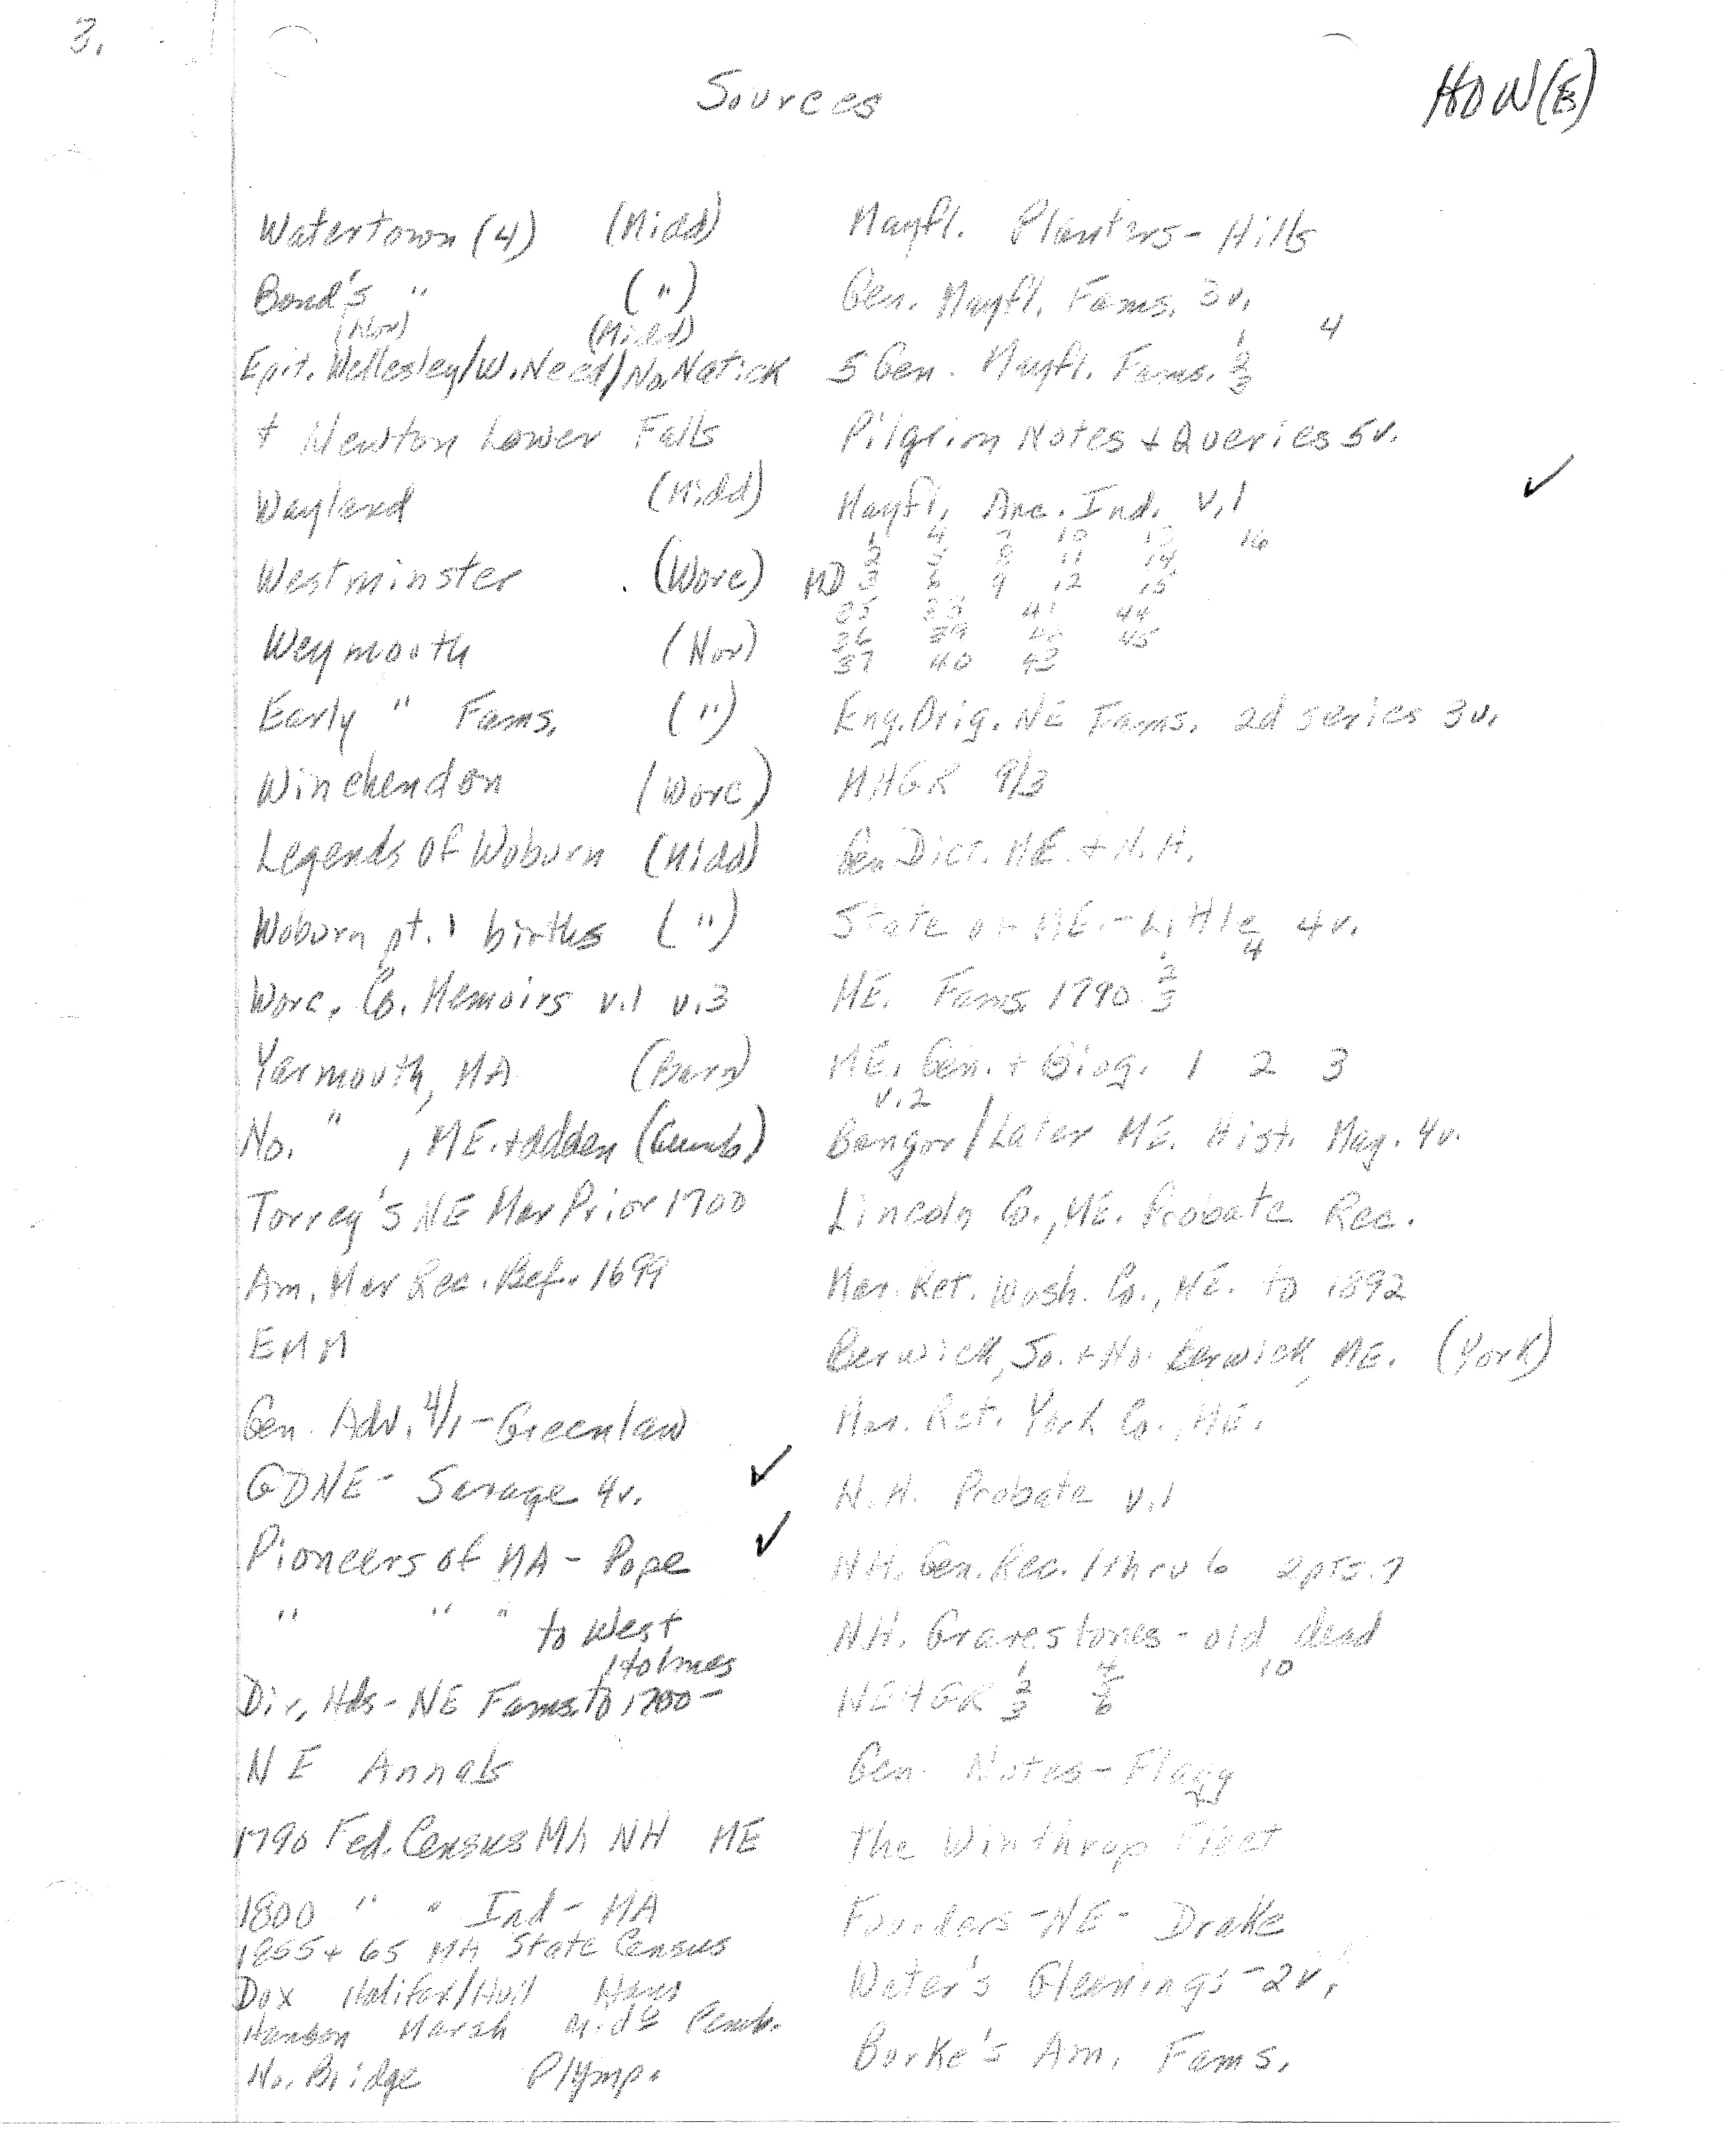 3.
Sources
HOW(E)
Watertown (4) (Midd)
Bond's " (")
(Nor) (Midd)
Epit. Wellesley/W. Need/No. Natick
+ Newton Lower Falls
Wayland (Midd)
Westminster (Worc)
Weymouth (Nor)
Early " Fams. (")
Winchendon (Worc)
Legends of Woburn (Midd)
Woburn pt. 1 births (")
Worc. Co. Memoirs v.1 v.3
Yarmouth, MA (Barn)
No. " , ME. + adden (Cumb)
Torrey's NE Mar Prior 1700
Am. Mar Rec. Bef. 1699
EMM
Gen. Adv. 4/1 - Greenlaw
GDNE - Savage 4v. ✓
Pioneers of MA - Pope ✓
" " " to West
Holmes
Dir. Hds - NE Fams. to 1700 -
NE Annals
1790 Fed. Census MA NH ME
1800 " " Ind - MA
1855 + 65 MA State Census
Dox Halifax/Hull Hans
Hanson Marsh Midd Pemb.
No. Bridge Plymp.
Mayfl. Planters - Hills
Gen. Mayfl. Fams. 3v.
5 Gen. Mayfl. Fams. 1 2 3 4
Pilgrim Notes + Queries 5v.
Mayfl. Anc. Ind. v.1 ✓
1 4 7 10 13 16
2 5 8 11 14
MD 3 6 9 12 15
41 44
39 45
37 40 43
Eng. Orig. NE Fams. 2d series 3v.
MHGR 9/3
Gen Dict. ME. + N.H.
State of ME. - Little 4v.
ME. Fams 1790 1 2 3 4
ME. Gen. + Biog. 1 2 3
v.2
Bangor/Later ME. Hist. Mag. 4v.
Lincoln Co., ME. Probate Rec.
Mar. Ret. Wash. Co., ME. to 1892
Berwick, So. + No. Berwick, ME. (York)
Mar. Ret. York Co., ME.
N.H. Probate v.1
NH. Gen. Rec. 1 thru 6 2pts. 7
NH. Gravestones - old dead
NEHGR 1 2 3 4 5 6 10
Gen. Notes - Flagg
The Winthrop Fleet
Founders - NE - Drake
Water's Gleanings - 2v.
Burke's Am. Fams.